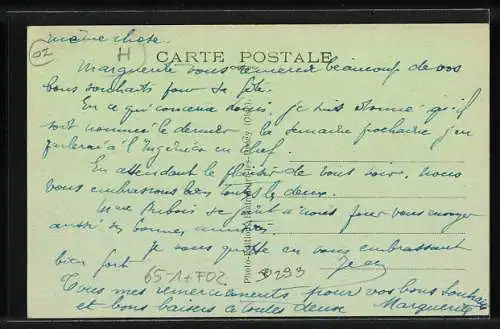 même chose.
02
H
CARTE POSTALE
Marguerite vous remercie beaucoup de vos
bons souhaits pour sa fête.
En ce qui concerne Louis, je suis étonné qu'il
soit nommé le dernier la semaine prochaine j'en
parlerai à l'Ingénieur en Chef
En attendant le plaisir de vous voir. Nous
vous embrassons bien toutes les deux.
Mme Dubois se joint à nous pour vous envoyer
aussi ses bonnes amitiés.
Je vous quitte en vous embrassant
bien fort
Jean
651+702
$293
Tous mes remerciements pour vos bons souhaits
et bons baisers à toutes deux Marguerite
Photo-Edition